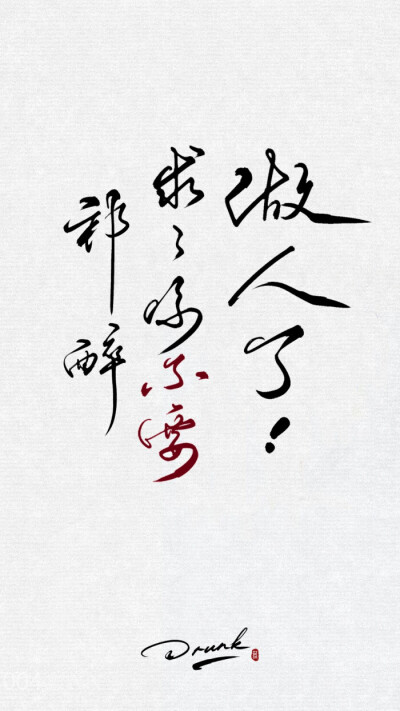 祁醉
求〻你不要
做人了！
Drunk